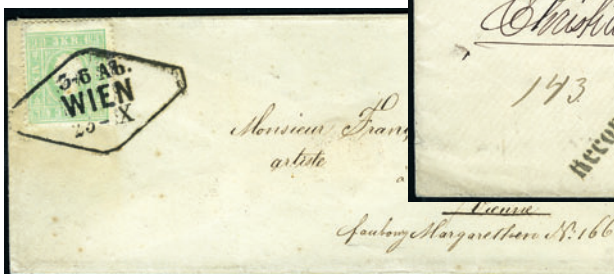 3 KR
3-6 Ab.
WIEN
25 X
Monsieur Franç
artiste
a
Vienne
faubourg Margarethen N: 166
143
Reco